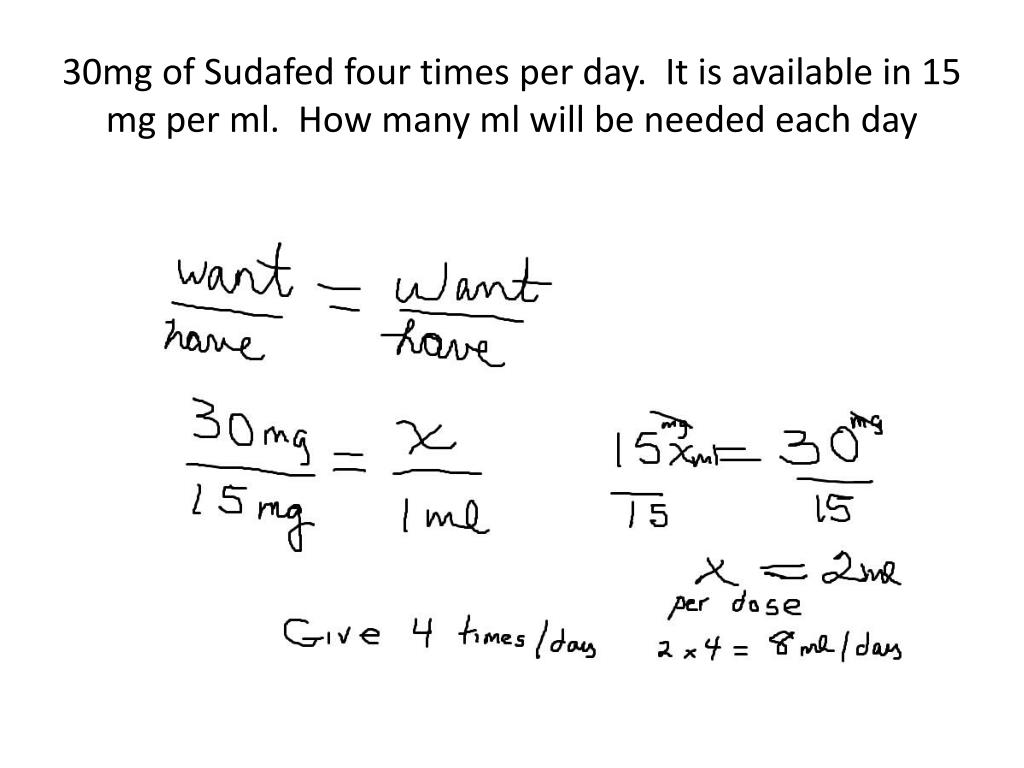 30mg of Sudafed four times per day. It is available in 15
mg per ml. How many ml will be needed each day
want = want
have have
30mg = x
15mg 1ml
15mg xml = 30mg
15 15
x = 2ml
per dose
Give 4 times/day
2 x 4 = 8ml/day